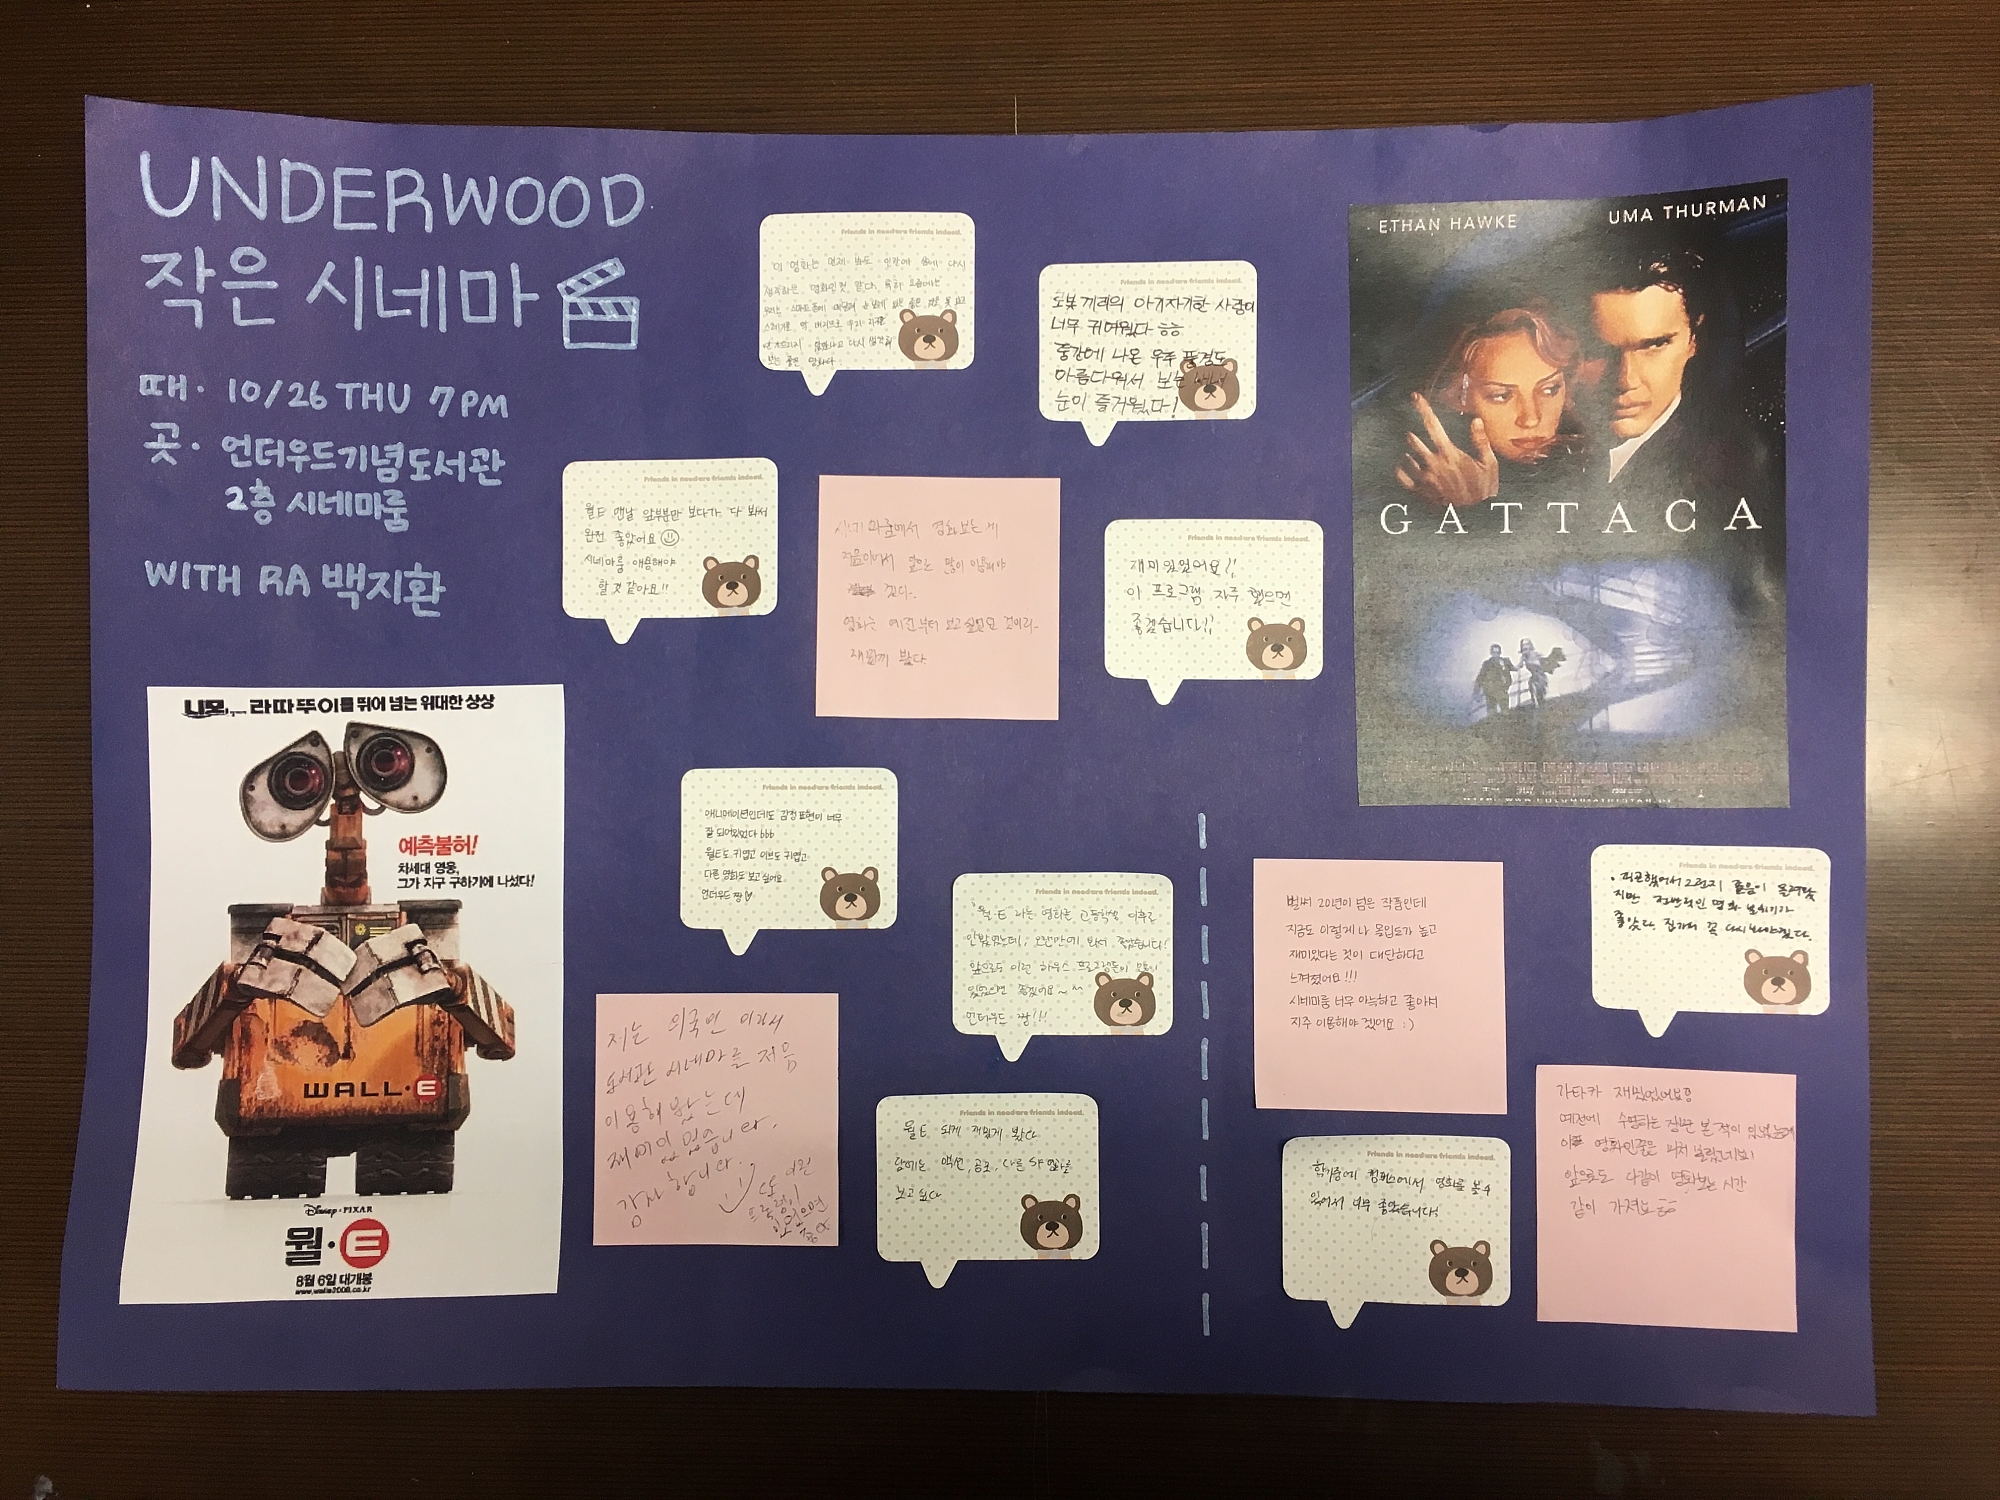 UNDERWOOD
작은 시네마
때. 10/26 THU 7PM
곳. 언더우드기념도서관
2층 시네마룸
WITH RA 백지환
니모, 라따뚜이를 뛰어 넘는 위대한 상상
예측불허!
차세대 영웅,
그가 지구 구하기에 나섰다!
WALL·E
Disney·PIXAR
월·E
8월 6일 대개봉
www.walle2008.co.kr
Friends in need are friends indeed.
이 영화는 언제 봐도
로봇끼리의 아기자기한 사랑이
너무 귀여웠다 ㅎㅎ
중간에 나온 우주 풍경도
아름다워서 보는 내내
눈이 즐거웠다!
Friends in need are friends indeed.
월E 맨날 앞부분만 보다가 다 봐서
완전 좋았어요
시네마룸 애용해야
할 것 같아요!!
영화보는게
처음이어서 앞으로 많이 이용해야
겠다.
영화는 예전부터 보고 싶었던 것이라
재밌게 봤다.
Friends in need are friends indeed.
재미있었어요!!
이 프로그램 자주 했으면
좋겠습니다!!
Friends in need are friends indeed.
애니메이션인데도 감정표현이 너무
잘 되어있었다 bbb
월E도 귀엽고 이브도 귀엽고
다른 영화도 보고싶어요
언더우드 짱
Friends in need are friends indeed.
"월·E"라는 영화는 고등학생 이후로
안봤었는데, 오랜만에 봐서 좋았습니다!
앞으로도 이런 하우스 프로그램들이 많이
있었으면 좋겠어요~^^
언더우드 짱!!!
저는 외국인 이라서
도서관 시네마를 처음
이용해 봤는데
재미있었습니다.
감사합니다.
또 이런
프로그램이
있었으면
Friends in need are friends indeed.
월E 되게 재밌게 봤다
담에는 액션, 공포, 다른 SF 영화를
보고싶다
ETHAN HAWKE
UMA THURMAN
GATTACA
벌써 20년이 넘은 작품인데
지금도 이렇게나 몰입도가 높고
재미있다는 것이 대단하다고
느껴졌어요!!!
시네마룸 너무 아늑하고 좋아서
자주 이용해야겠어요 :)
Friends in need are friends indeed.
피곤했어서 그런지 졸음이 몰려왔
지만 전반적인 영화 분위기가
좋았다. 집가서 꼭 다시봐야겠다.
Friends in need are friends indeed.
학기중에 캠퍼스에서 영화를 볼 수
있어서 너무 좋았습니다!
가타카 재밌었어요!
예전에 수영하는 장면 본 적이 있었는데
이 영화인줄은 미처 몰랐네요!
앞으로도 다같이 영화보는 시간
같이 가져요